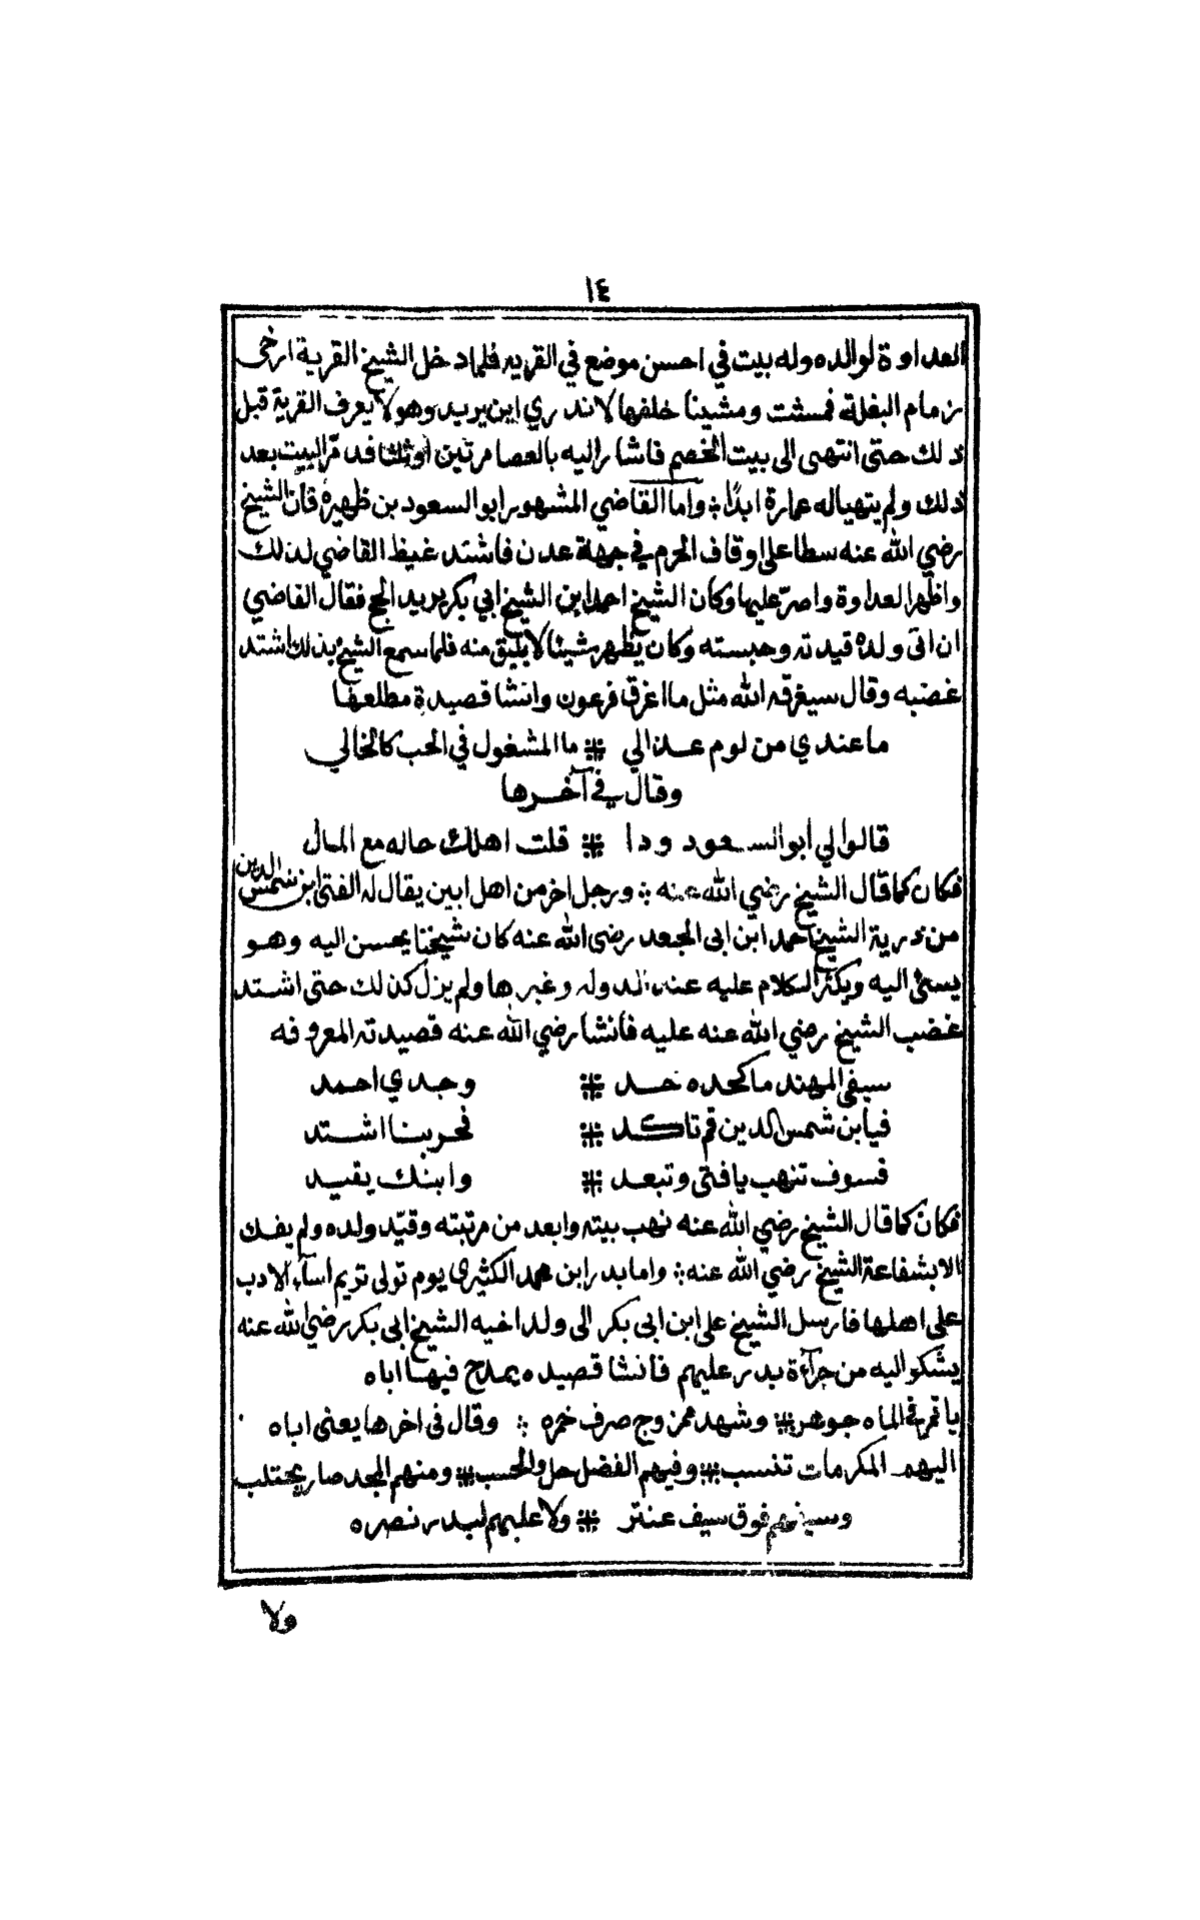 ١٤
العداوة لوالده وله بيت في احسن موضع في القريه فلما دخل الشيخ القرية ارخى
زمام البغلة فمشت ومشينا خلفها لا ندري اين يريد وهو لا يعرف القرية قبل
ذلك حتى انتهى الى بيت الخصم فاشار اليه بالعصا مرتين او ثلثا فدمّر البيت بعد
ذلك ولم يتهيا له عمارة ابدًا ۞ واما القاضي المشهور ابو السعود بن ظهيرة فان الشيخ
رضي الله عنه سطا على اوقاف الحرم في جهة عدن فاشتد غيظ القاضي لذلك
واظهر العداوة واصرّ عليها وكان الشيخ احمد ابن الشيخ ابي بكر يريد الحج فقال القاضي
ان اتى ولده قيدته وحبسته وكان يظهر شيئا لا يليق منه فلما سمع الشيخ بذلك اشتد
غضبه وقال سيغرقه الله مثل ما اغرق فرعون وانشا قصيدة مطلعها
ما عندي من لوم عذالي ۞ ما المشغول في الحب كالخالي
وقال في آخرها
قالوا لي ابو السعود ودا ۞ قلت اهلك حاله مع المال
فكان كما قال الشيخ رضي الله عنه ۞ ورجل اخر من اهل ابين يقال له الفتى ابن شمس الدين
من ذرية الشيخ احمد ابن ابى الجعد رضى الله عنه كان شيخنا يحسن اليه وهو
يسئ اليه ويكثر الكلام عليه عند الدوله وغيرها ولم يزل كذلك حتى اشتد
غضب الشيخ رضي الله عنه عليه فانشا رضي الله عنه قصيدته المعروفه
سيفي المهند ما كحده حد ۞ وجدي احمد
فيا ابن شمس الدين قم تاكد ۞ فحربنا اشتد
فسوف تنهب يا فتى وتبعد ۞ وابنك يقيد
فكان كما قال الشيخ رضي الله عنه نهب بيته وابعد من مرتبته وقيّد ولده ولم يفك
الا بشفاعة الشيخ رضي الله عنه ۞ واما بدر ابن محمد الكثيرى يوم تولى تريم اساء الادب
على اهلها فارسل الشيخ على ابن ابى بكر الى ولد اخيه الشيخ ابى بكر رضي الله عنه
يشكو اليه من جراءة بدر عليهم فانشا قصيده يمدح فيها اباه
يا قمر في الماه جوهر ۞ وشهد ممزوج صرف خمره ۞ وقال فى اخرها يعنى اباه
اليهم المكرمات تنسب ۞ وفيهم الفضل حل والحسب ۞ ومنهم المجد صار يجتلب
وسيفهم فوق سيف عنتر ۞ ولا عليهم لبدر نصره
ولا